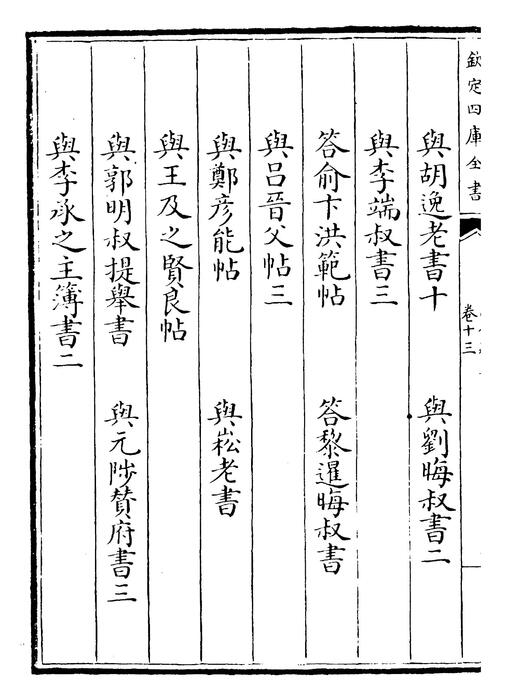 欽定四庫全書
卷十三
與胡逸老書十　與劉晦叔書二
與李端叔書三
答俞卞洪範帖　答黎暹晦叔書
與呂晉父帖三
與鄭彦能帖　與崧老書
與王及之賢良帖
與郭明叔提舉書　與元陟賛府書三
與李承之主簿書二